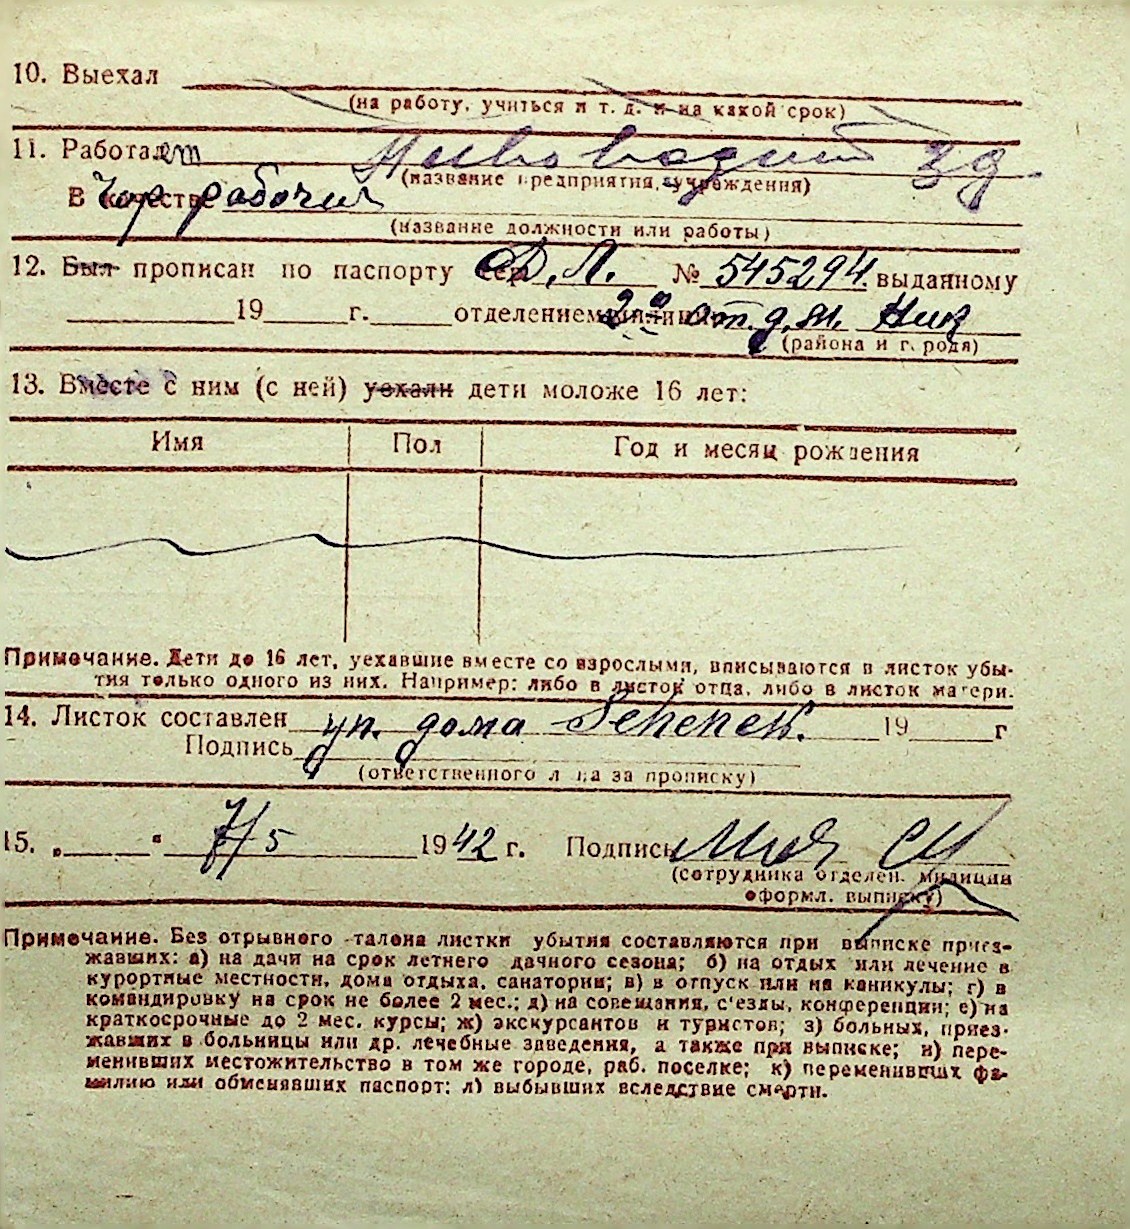 10. Выехал
(на работу, учиться и т. д. и на какой срок)
11. Работает Пивоводит зд
(название предприятия, учреждения)
в качестве чор рабочий
(название должности или работы)
12. Был прописан по паспорту сер Д. Л. № 545294. выданному
19 г. отделением милиции 2е от. д. м.
(района и города)
13. Вместе с ним (с ней) уехали дети моложе 16 лет:
Имя Пол Год и месяц рождения
Примечание. Дети до 16 лет, уехавшие вместе со взрослыми, вписываются в листок убы-
тия только одного из них. Например: либо в листок отца, либо в листок матери.
14. Листок составлен уп. дома 19 г
Подпись
(ответственного лица за прописку)
15. „ “ 7/5 1942 г. Подпись
(сотрудника отделен. милиции
оформл. выписку)
Примечание. Без отрывного талона листки убытия составляются при выписке приез-
жавших: а) на дачи на срок летнего дачного сезона; б) на отдых или лечение в
курортные местности, дома отдыха, санатории; в) в отпуск или на каникулы; г) в
командировку на срок не более 2 мес.; д) на совещания, с'езды, конференции; е) на
краткосрочные до 2 мес. курсы; ж) экскурсантов и туристов; з) больных, приез-
жавших в больницы или др. лечебные заведения, а также при выписке; и) пере-
менивших местожительство в том же городе, раб. поселке; к) переменивших фа-
милию или обменявших паспорт; л) выбывших вследствие смерти.